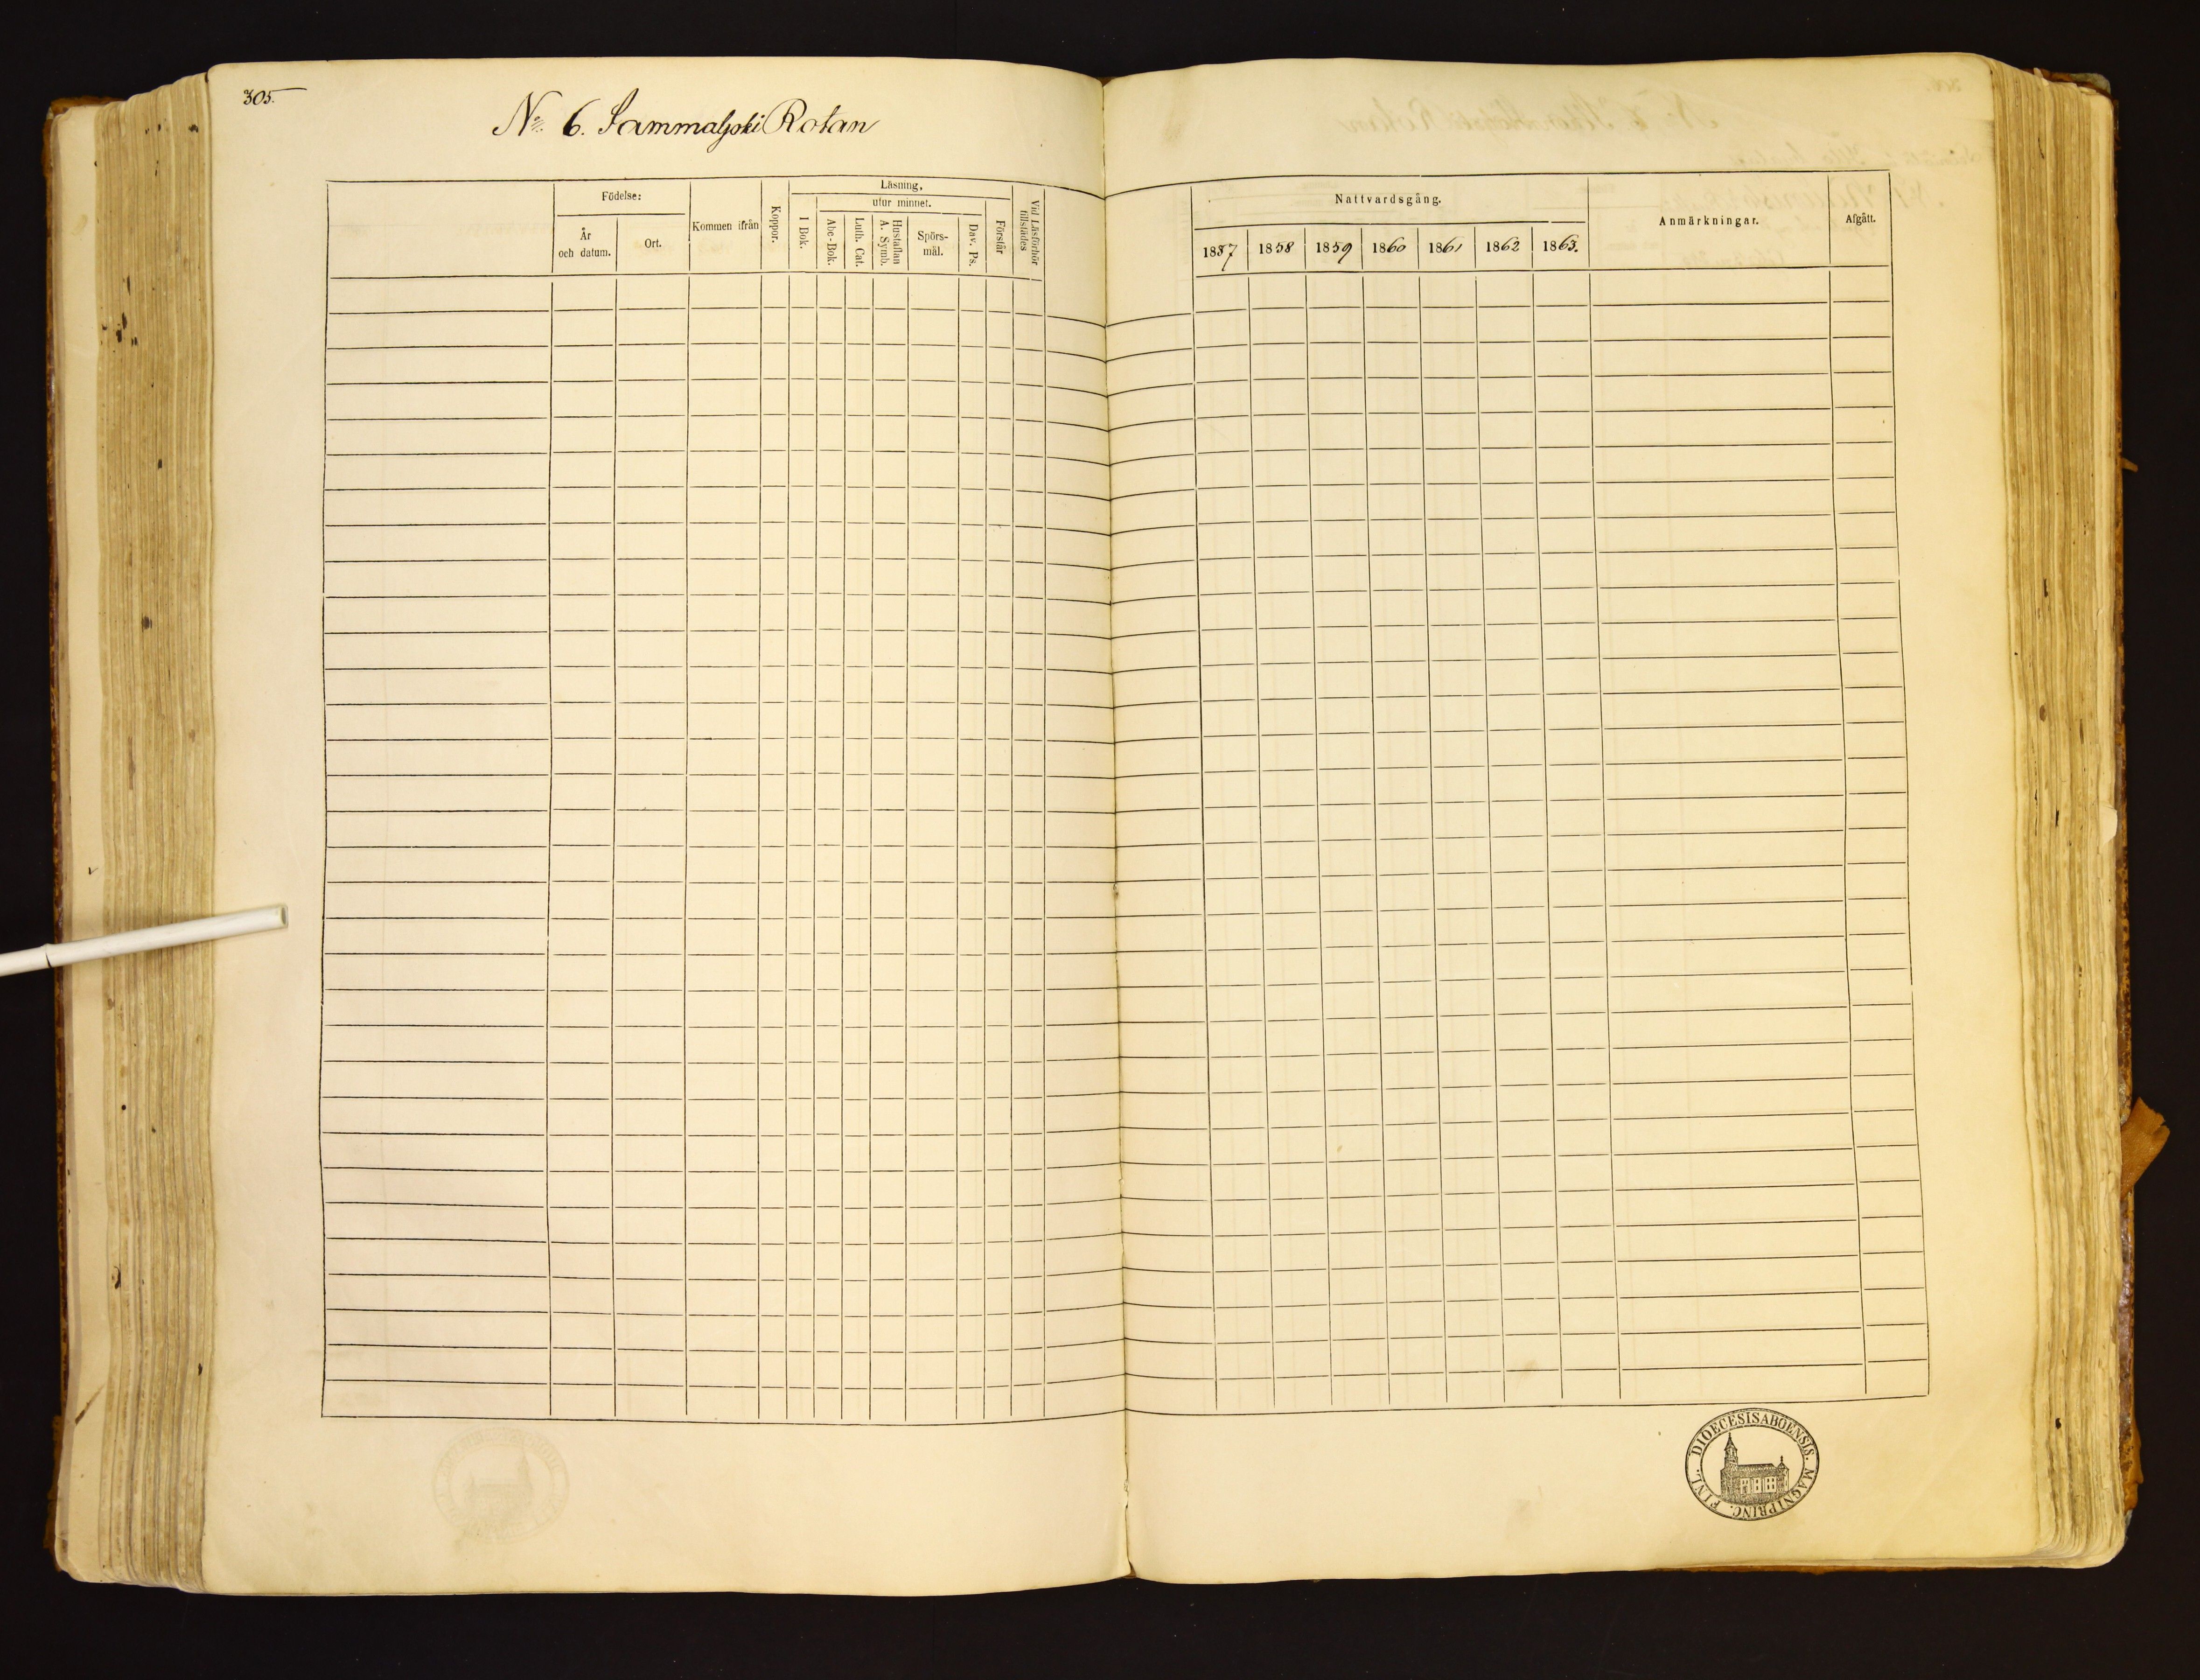 305.
No. 6. Sammaljoki Rotan
Födelse:
År och datum.
Ort.
Kommen ifrån
Koppor.
Läsning,
I Bok.
utur minnet.
Abc-Bok.
Luth. Cat.
Hustaflan A. Symb.
Spörs-mål.
Dav. Ps.
Förstår
Vid Läsförhör tillstädes
Nattvardsgång.
1857 1858 1859 1860 1861 1862 1863.
Anmärkningar.
Afgått.
DIOECESIS ABOENSIS. MAGNI PRINC. FINL.